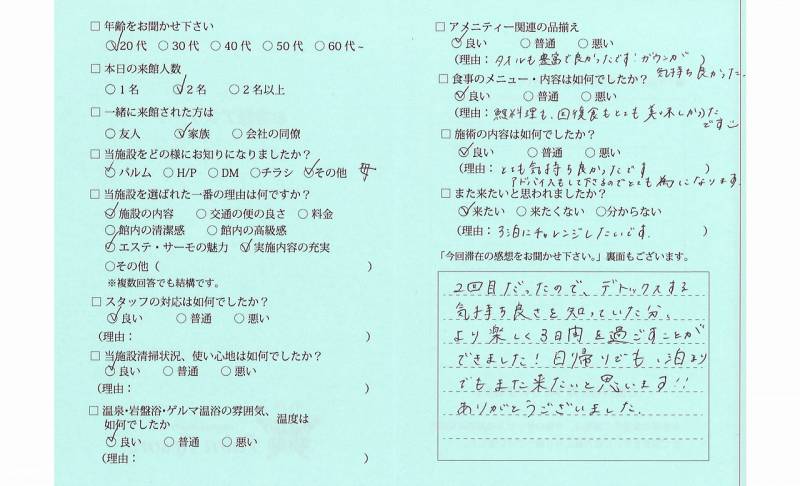 □ 年齢をお聞かせ下さい
○20代 ○30代 ○40代 ○50代 ○60代~
□ 本日の来館人数
○1名 ○2名 ○2名以上
□ 一緒に来館された方は
○友人 ○家族 ○会社の同僚
□ 当施設をどの様にお知りになりましたか?
○パルム ○H/P ○DM ○チラシ ○その他 母
□ 当施設を選ばれた一番の理由は何ですか?
○施設の内容 ○交通の便の良さ ○料金
○館内の清潔感 ○館内の高級感
○エステ・サーモの魅力 ○実施内容の充実
○その他( )
※複数回答でも結構です。
□ スタッフの対応は如何でしたか?
○良い ○普通 ○悪い
(理由: )
□ 当施設清掃状況、使い心地は如何でしたか?
○良い ○普通 ○悪い
(理由: )
□ 温泉・岩盤浴・ゲルマ温浴の雰囲気、温度は
如何でしたか
○良い ○普通 ○悪い
(理由: )
□ アメニティー関連の品揃え
○良い ○普通 ○悪い
(理由: タオルも豊富で良かったです!ガウンが )
気持ち良かった。
□ 食事のメニュー・内容は如何でしたか?
○良い ○普通 ○悪い
(理由: 鰻料理も、回復食もとても美味しかった
です
□ 施術の内容は如何でしたか?
○良い ○普通 ○悪い
(理由: とても気持ち良かったです )
アドバイスもして下さるのでとても為になります。
□ また来たいと思われましたか?
○来たい ○来たくない ○分からない
(理由: 3泊にチャレンジしたいです。 )
「今回滞在の感想をお聞かせ下さい。」裏面もございます。
2回目だったので、デトックスする
気持ち良さを知っていた分、
より楽しく3日間を過ごすことが
できました!日帰りでも、泊まり
でもまた来たいと思います!!
ありがとうございました。